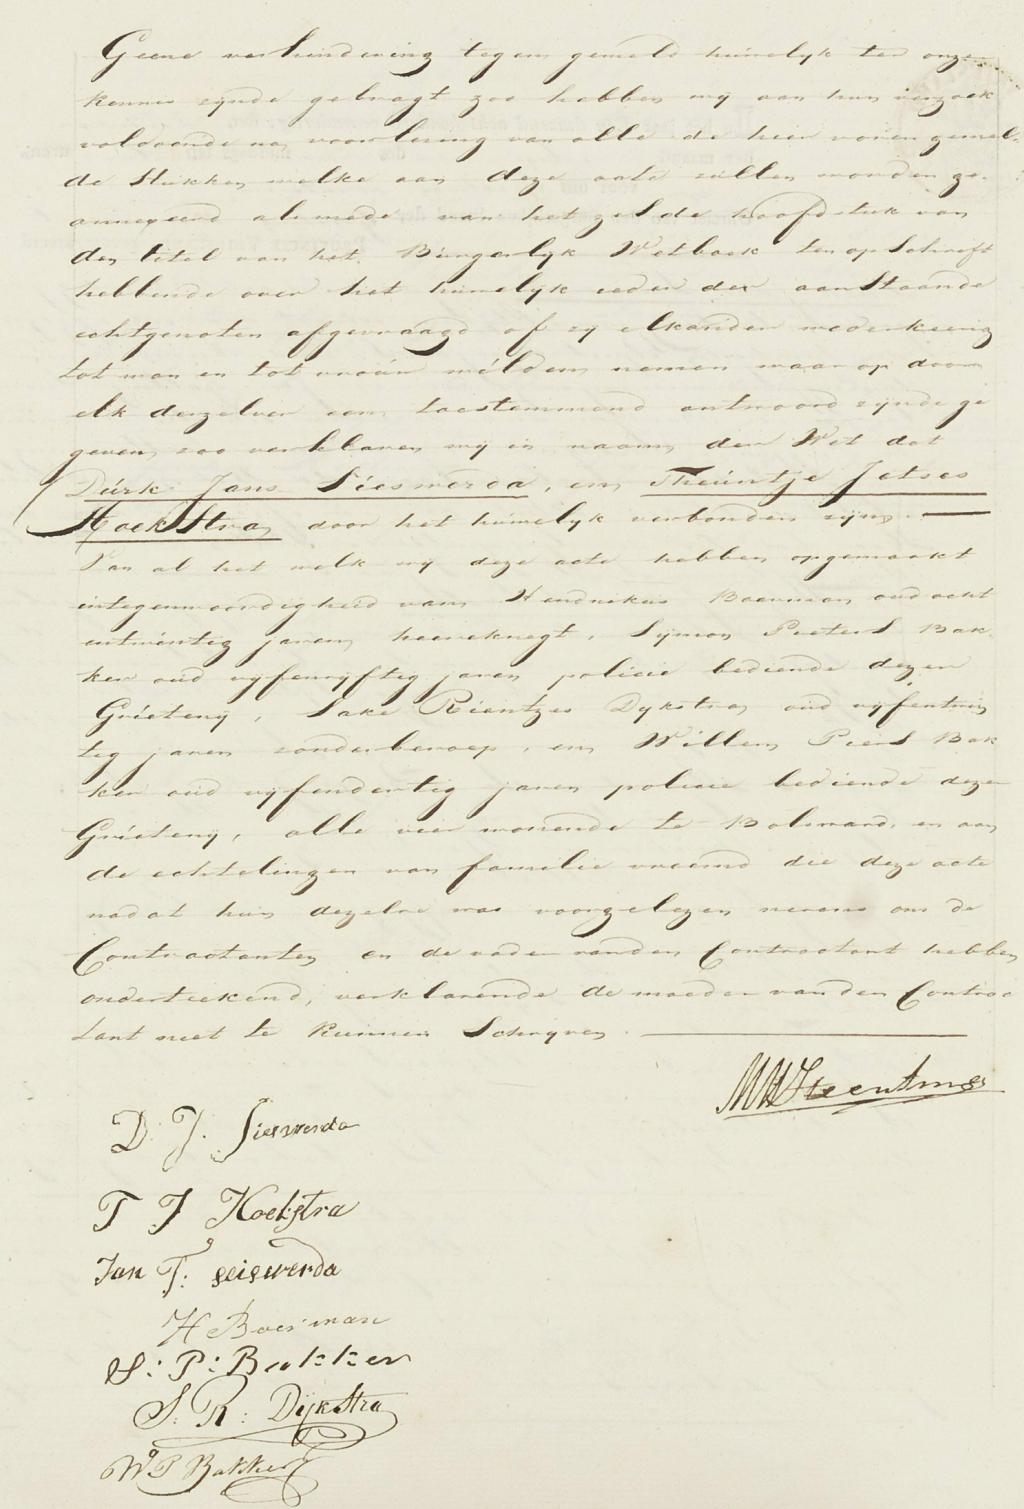 Geene verhindering tegens gemeld huwelyk ter onzer
kennis zynde gebragt zoo hebben wy aan hun verzoek
voldoende na voorlezing van alle de hier voren gemel
de stukken welke aan deze acte zullen worden ge-
annexeerd als mede van het zesde hoofdstuk van
den titel van het Burgerlyk Wetboek ten opschrift
hebbende over het huwelyk ieder der aanstaande
echtgenoten afgevraagd of zy elkander wederkeerig
tot man en tot vrouw wilden nemen waar op door
elk derzelver een toestemmend antwoord zynde ge
geven, zoo verklaren wy in naam der Wet dat
Durk Jans Sieswerda, en Theuntje Jetses
Hoekstra door het huwelyk verbonden zyn.
Van al het welk wy deze acte hebben opgemaakt
in tegenwoordigheid van Hendrikus Boerman oud acht
entwintig jaren heereknegt, Symon Pieters Bak
ker oud vyfenvyftig jaren policie bediende dezer
Grieteny, Sake Rientzes Dykstra oud vyfentwin
tig jaren zonder beroep, en Willem Piers Bak
ker oud vyfendertig jaren policie bediende dezer
Grieteny, alle vier wonende te Bolsward, en aan
de echtelingen van familie vreemd die deze acte
nadat hun dezelve was voorgelezen nevens ons de
Contractanten en de vader van den Contractant hebben
onderteekend, verklarende de moeder van den Contrac
tant niet te kunnen Schryven.
D. J. Sieswerda
T J Hoekstra
Jan T: seiswerda
H Boerman
S: P: Bakker
S: R: Dijkstra
Wm P Bakker